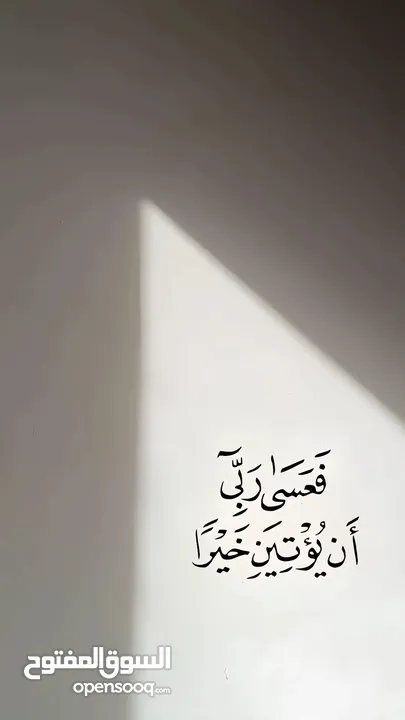 فَعَسَىٰ رَبِّيٓ
أَن يُؤْتِيَنِ خَيْرًا
السوق المفتوح
opensooq.com